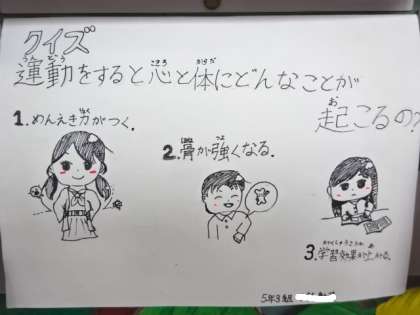 クイズ
運動をすると心と体にどんなことが
起こるのか
1.めんえき力がつく.
2.骨が強くなる.
3.学習効果が上がる.
5年3組